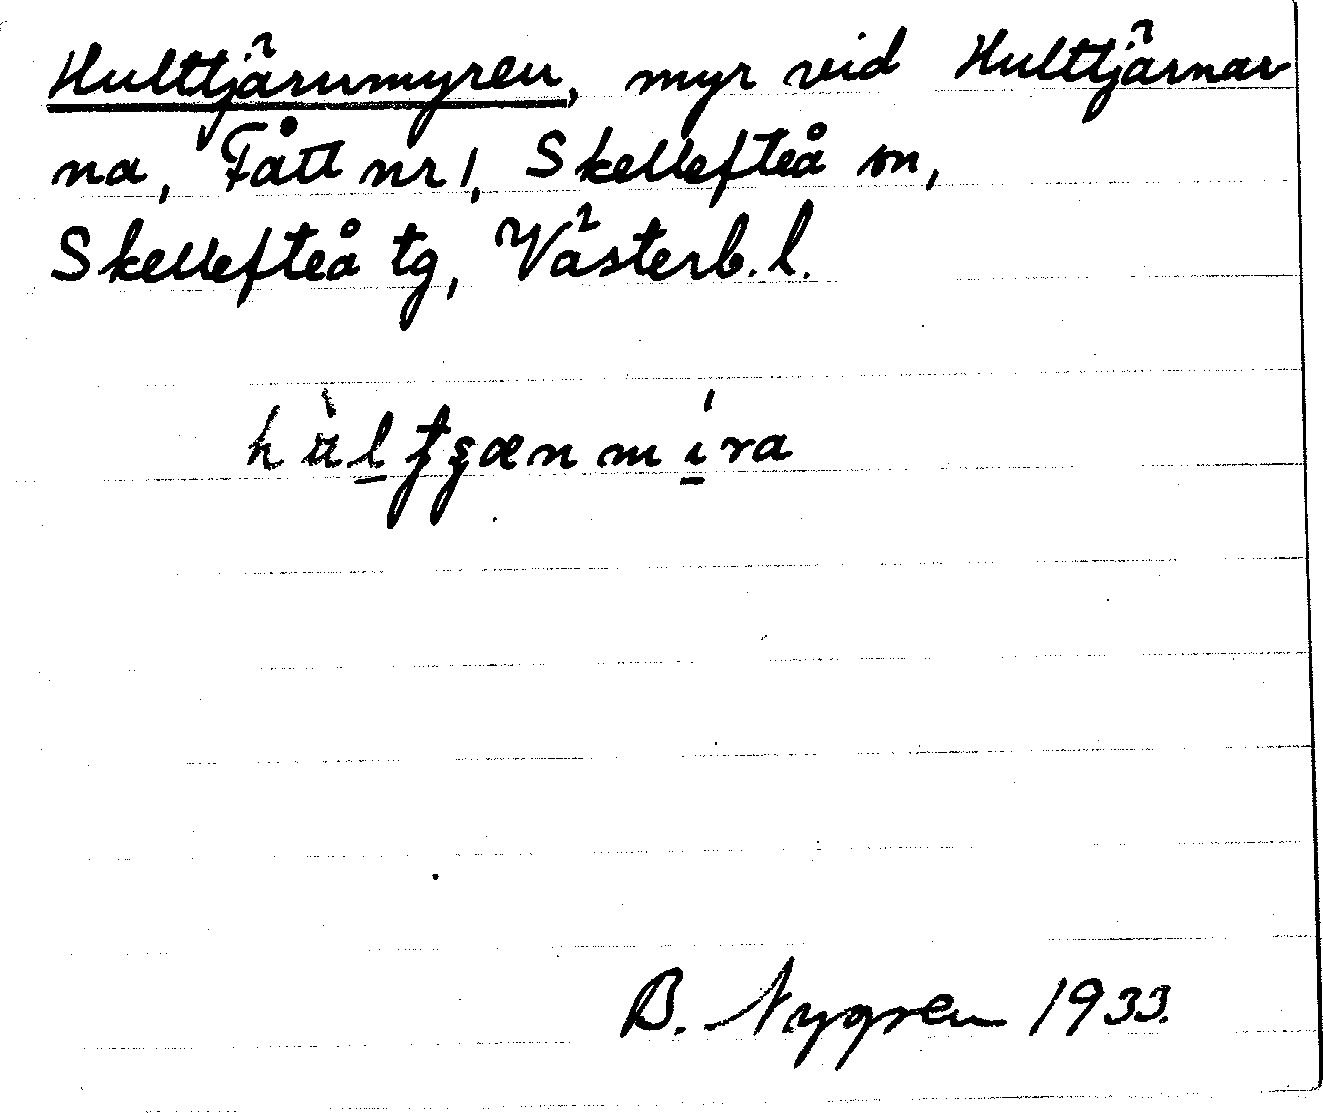 Hulttjärnmyren, myr vid Hulttjärnar
na, Fått nr 1, Skellefteå sn,
Skellefteå tg, Västerb. l.
B. Nygren 1933.